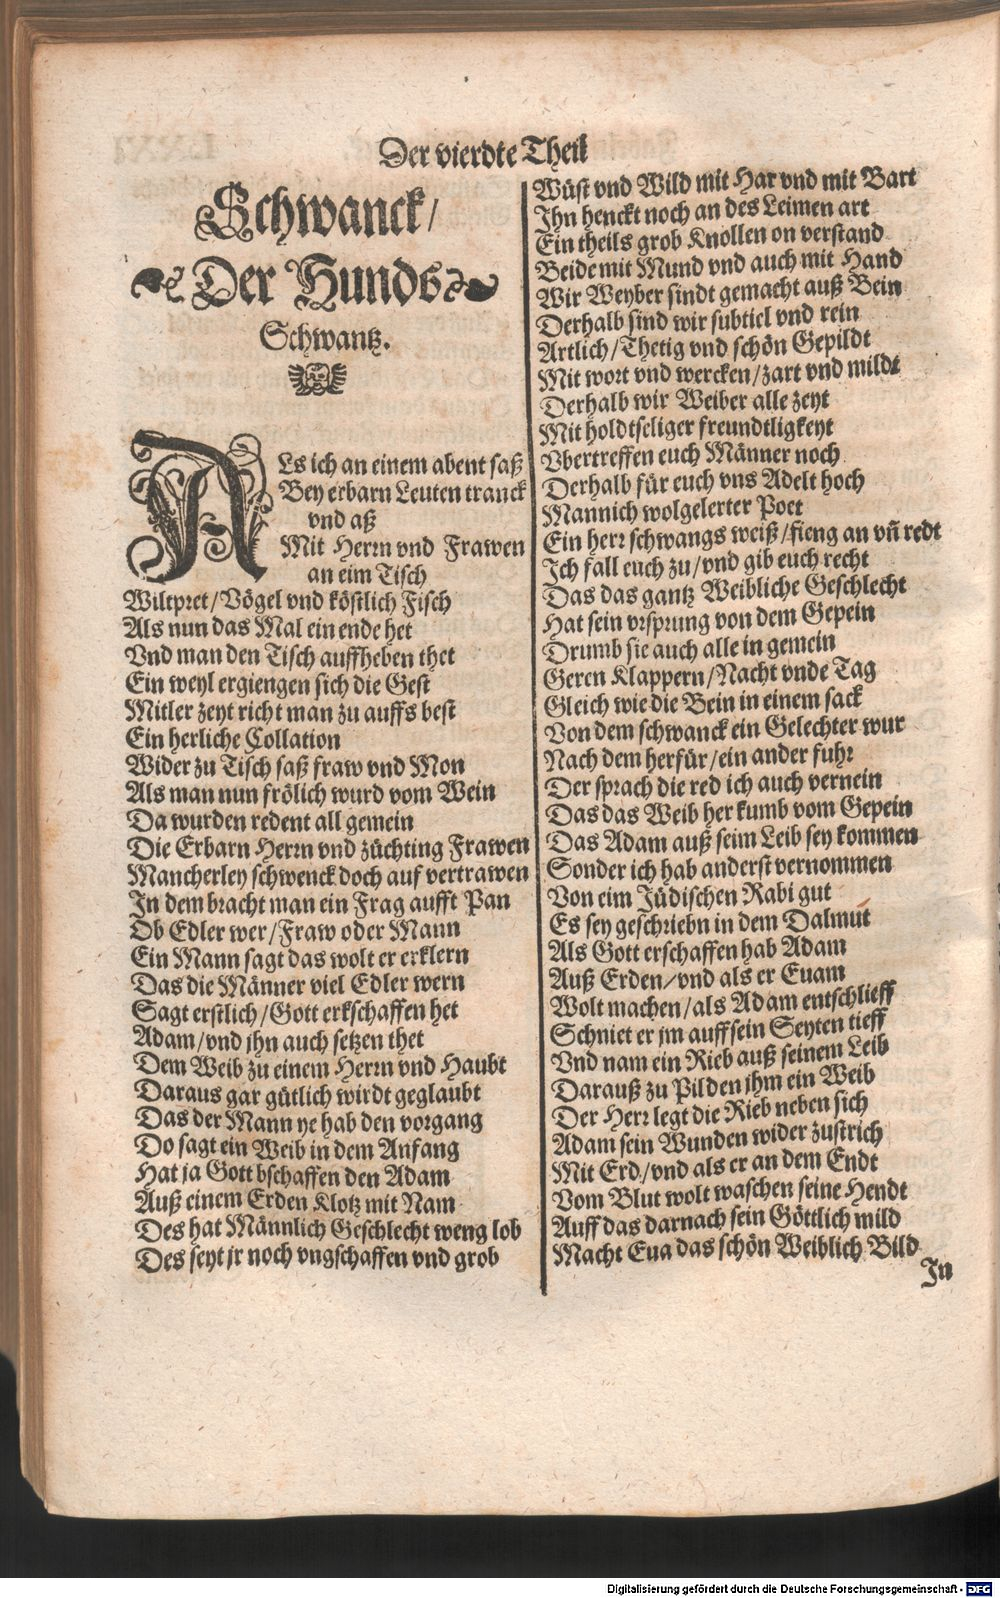 Der vierdte Theil
Schwanck/
Der Hunds
Schwantz.
ALs ich an einem abent saß
Bey erbarn Leuten tranck
vnd aß
Mit Herrn vnd Frawen
an eim Tisch
Wiltpret/Vögel vnd köstlich Fisch
Als nun das Mal ein ende het
Vnd man den Tisch auffheben thet
Ein weyl ergiengen sich die Gest
Mitler zeyt richt man zu auffs best
Ein herliche Collation
Wider zu Tisch saß fraw vnd Mon
Als man nun frölich wurd vom Wein
Da wurden redent all gemein
Die Erbarn Herrn vnd züchting Frawen
Mancherley schwenck doch auf vertrawen
In dem bracht man ein Frag aufft Pan
Ob Edler wer/Fraw oder Mann
Ein Mann sagt das wolt er erklern
Das die Männer viel Edler wern
Sagt erstlich/Gott erkschaffen het
Adam/vnd jhn auch setzen thet
Dem Weib zu einem Herrn vnd Haubt
Daraus gar gütlich wirdt geglaubt
Das der Mann ye hab den vorgang
Do sagt ein Weib in dem Anfang
Hat ja Gott bschaffen den Adam
Auß einem Erden Klotz mit Nam
Des hat Männlich Geschlecht weng lob
Des seyt jr noch vngschaffen vnd grob
Wüst vnd Wild mit Har vnd mit Bart
Ihn henckt noch an des Leimen art
Ein theils grob Knollen on verstand
Beide mit Mund vnd auch mit Hand
Wir Weyber sindt gemacht auß Bein
Derhalb sind wir subtiel vnd rein
Artlich/Thetig vnd schön Gepildt
Mit wort vnd wercken/zart vnd mildt
Derhalb wir Weiber alle zeyt
Mit holdtseliger freundtligkeyt
Vbertreffen euch Männer noch
Derhalb für euch vns Adelt hoch
Mannich wolgelerter Poet
Ein herr schwangs weiß/fieng an vn̄ redt
Ich fall euch zu/vnd gib euch recht
Das das gantz Weibliche Geschlecht
Hat sein vrsprung von dem Gepein
Drumb sie auch alle in gemein
Geren Klappern/Nacht vnde Tag
Gleich wie die Bein in einem sack
Von dem schwanck ein Gelechter wur
Nach dem herfür/ein ander fuhr
Der sprach die red ich auch vernein
Das das Weib her kumb vom Gepein
Das Adam auß seim Leib sey kommen
Sonder ich hab anderst vernommen
Von eim Jüdischen Rabi gut
Es sey geschriebn in dem Dalmut
Als Gott erschaffen hab Adam
Auß Erden/vnd als er Euam
Wolt machen/als Adam entschlieff
Schniet er jm auff sein Seyten tieff
Vnd nam ein Rieb auß seinem Leib
Darauß zu Pilden jhm ein Weib
Der Herr legt die Rieb neben sich
Adam sein Wunden wider zustrich
Mit Erd/vnd als er an dem Endt
Vom Blut wolt waschen seine Hendt
Auff das darnach sein Göttlich mild
Macht Eua das schön Weiblich Bild
In
Digitalisierung gefördert durch die Deutsche Forschungsgemeinschaft - DFG